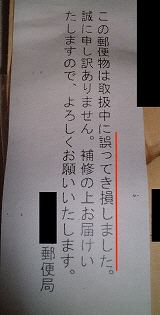 この郵便物は取扱中に誤ってき損しました。
誠に申し訳ありません。補修の上お届けい
たしますので、よろしくお願いいたします。
郵便局